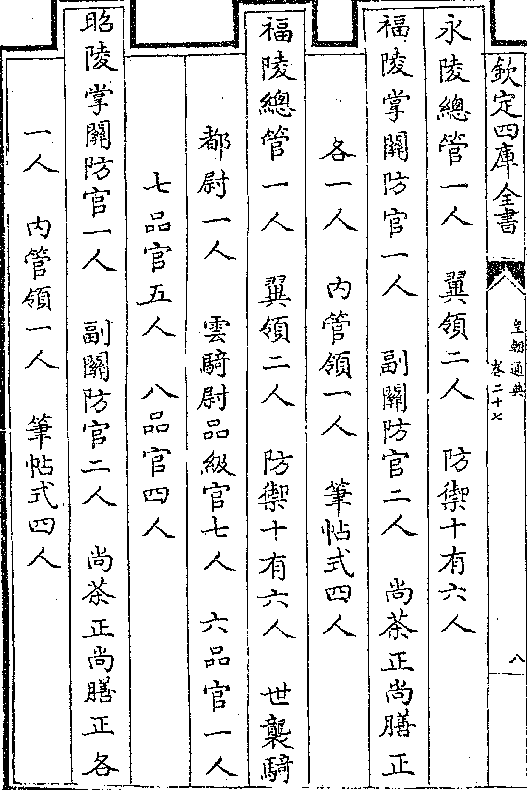 欽定四庫全書
皇朝通典
卷二十七
八
永陵總管一人 翼領二人 防禦十有六人
福陵掌關防官一人 副關防官二人 尚茶正尚膳正
各一人 內管領一人 筆帖式四人
福陵總管一人 翼領二人 防禦十有六人 世襲騎
都尉一人 雲騎尉品級官七人 六品官一人
七品官五人 八品官四人
昭陵掌關防官一人 副關防官二人 尚茶正尚膳正各
一人 內管領一人 筆帖式四人